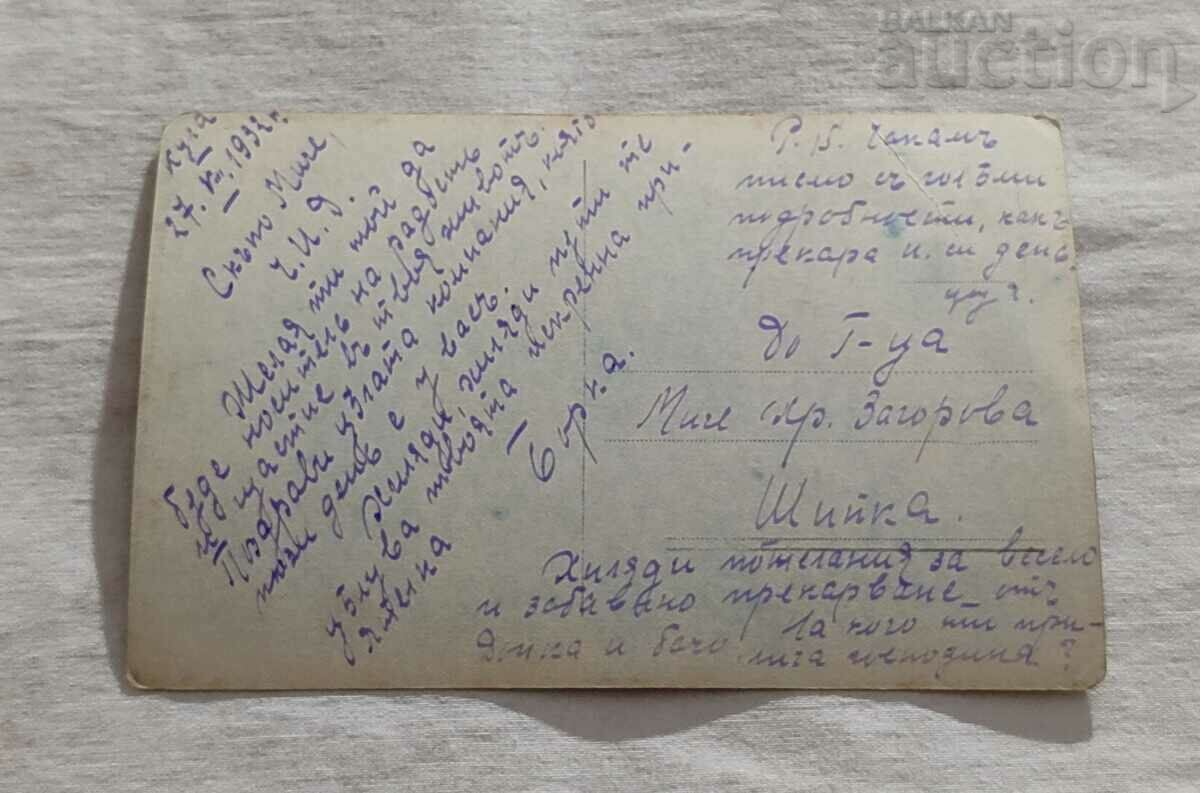 BALKAN
auction
27. VIII. 1932 г.
Скъпо Миче,
Ч. И. Д.
Желая ти той да
бѫде носитель на радость
и щастие въ твоя животъ.
Поздрави цѣлата компания, която
този день е у васъ.
Хиляди, хиляди пѫти те
цѣлува твоята искренна при-
ятелка
Борка.
P. S. Чакамъ
писмо съ голѣми
подробности, какъ
прекара и. си день
До Г-ца
Миче Хр. Загорова
Шипка.
Хиляди пожелания за весело
и забавно прекарване отъ
Донка и бачо. На кого ти при-
лича господина?